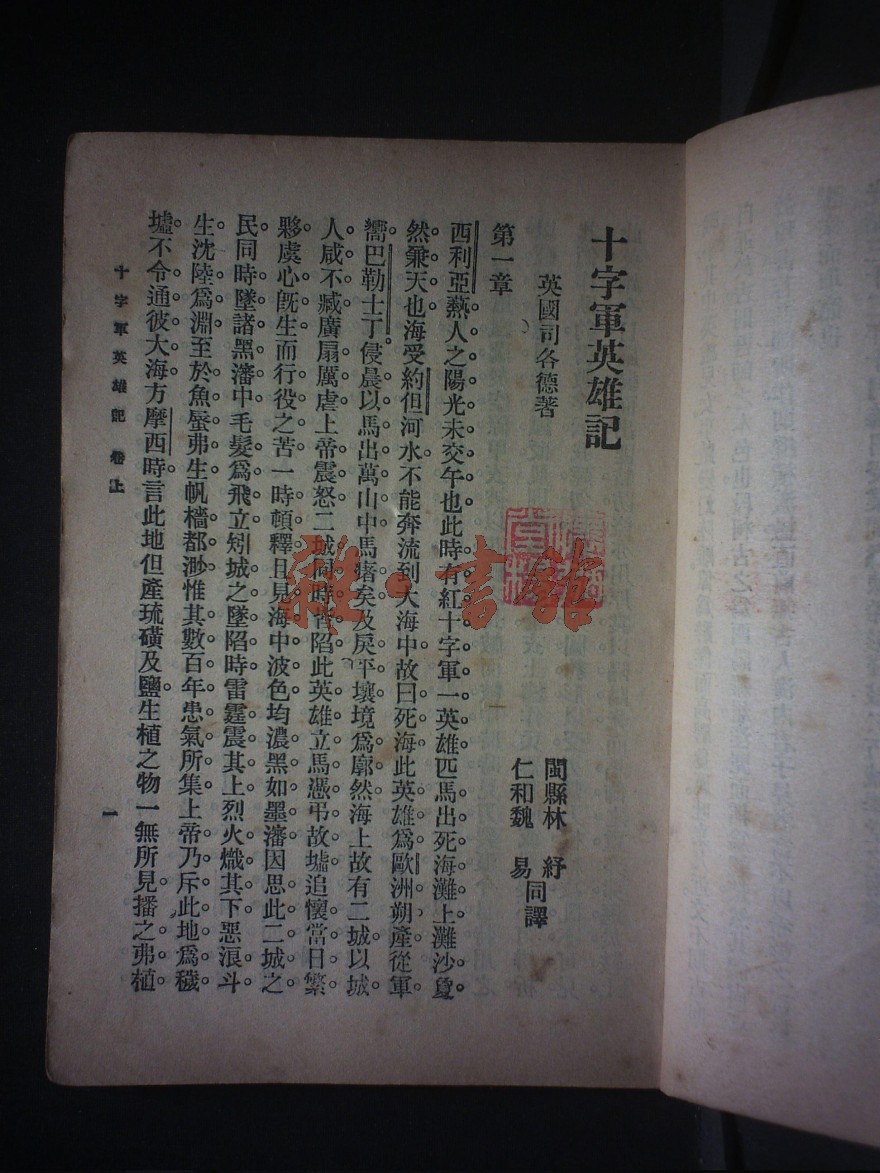 十字軍英雄記
英國司各德著
閩縣林　紓
仁和魏　易同譯
第一章
西利亞爇人之陽光未交午也此時有紅十字軍一英雄匹馬出死海灘上灘沙夐
然彙天也海受約但河水不能奔流到大海中故曰死海此英雄爲歐洲朔產從軍
嚮巴勒士丁侵晨以馬出萬山中馬瘏矣及戾平壤境爲廓然海上故有二城以城
人咸不臧廣扇厲虐上帝震怒二城同時沓陷此英雄立馬憑弔故墟追懷當日繁
夥虔心旣生而行役之苦一時頓釋且見海中波色均濃黑如墨瀋因思此二城之
民同時墜諸黑瀋中毛髮爲飛立矧城之墜陷時雷霆震其上烈火熾其下惡浪斗
生沈陸爲淵至於魚蜃弗生帆檣都渺惟其數百年患氣所集上帝乃斥此地爲穢
墟不令通彼大海方摩西時言此地但產琉磺及鹽生植之物一無所見播之弗植
十字軍英雄記　卷上
一
雜·書館